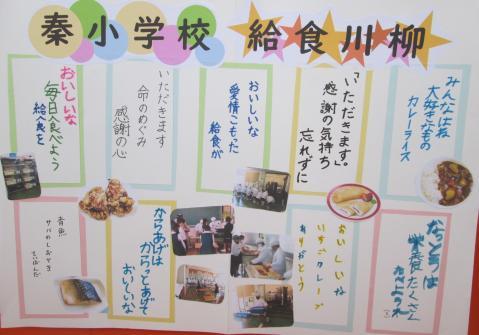 秦小学校 給食川柳
みんなはね
大好きなもの
カレーライス
「いただきます。」
感謝の気持ち
忘れずに
おいしいな
愛情こもった
給食が
いただきます
命のめぐみ
感謝の心
おいしいな
毎日食べよう
給食を
なっとうは
栄養たくさん
たべようね
おいしいな
いちごクレープ
ありがとう
からあげは
からっとあげて
おいしいな
青魚
サバのしおやき